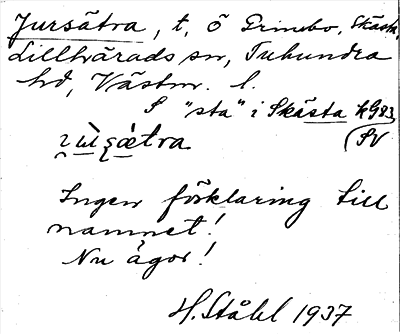 Jursätra, t, Ö Grimsbo, Skästa,
Lillhärads sn, Tuhundra
hd, Västm. l.
S "sta" i Skästa KG83
SV
Ingen förklaring till
namnet!
Nu ägor!
H. Ståhl 1937